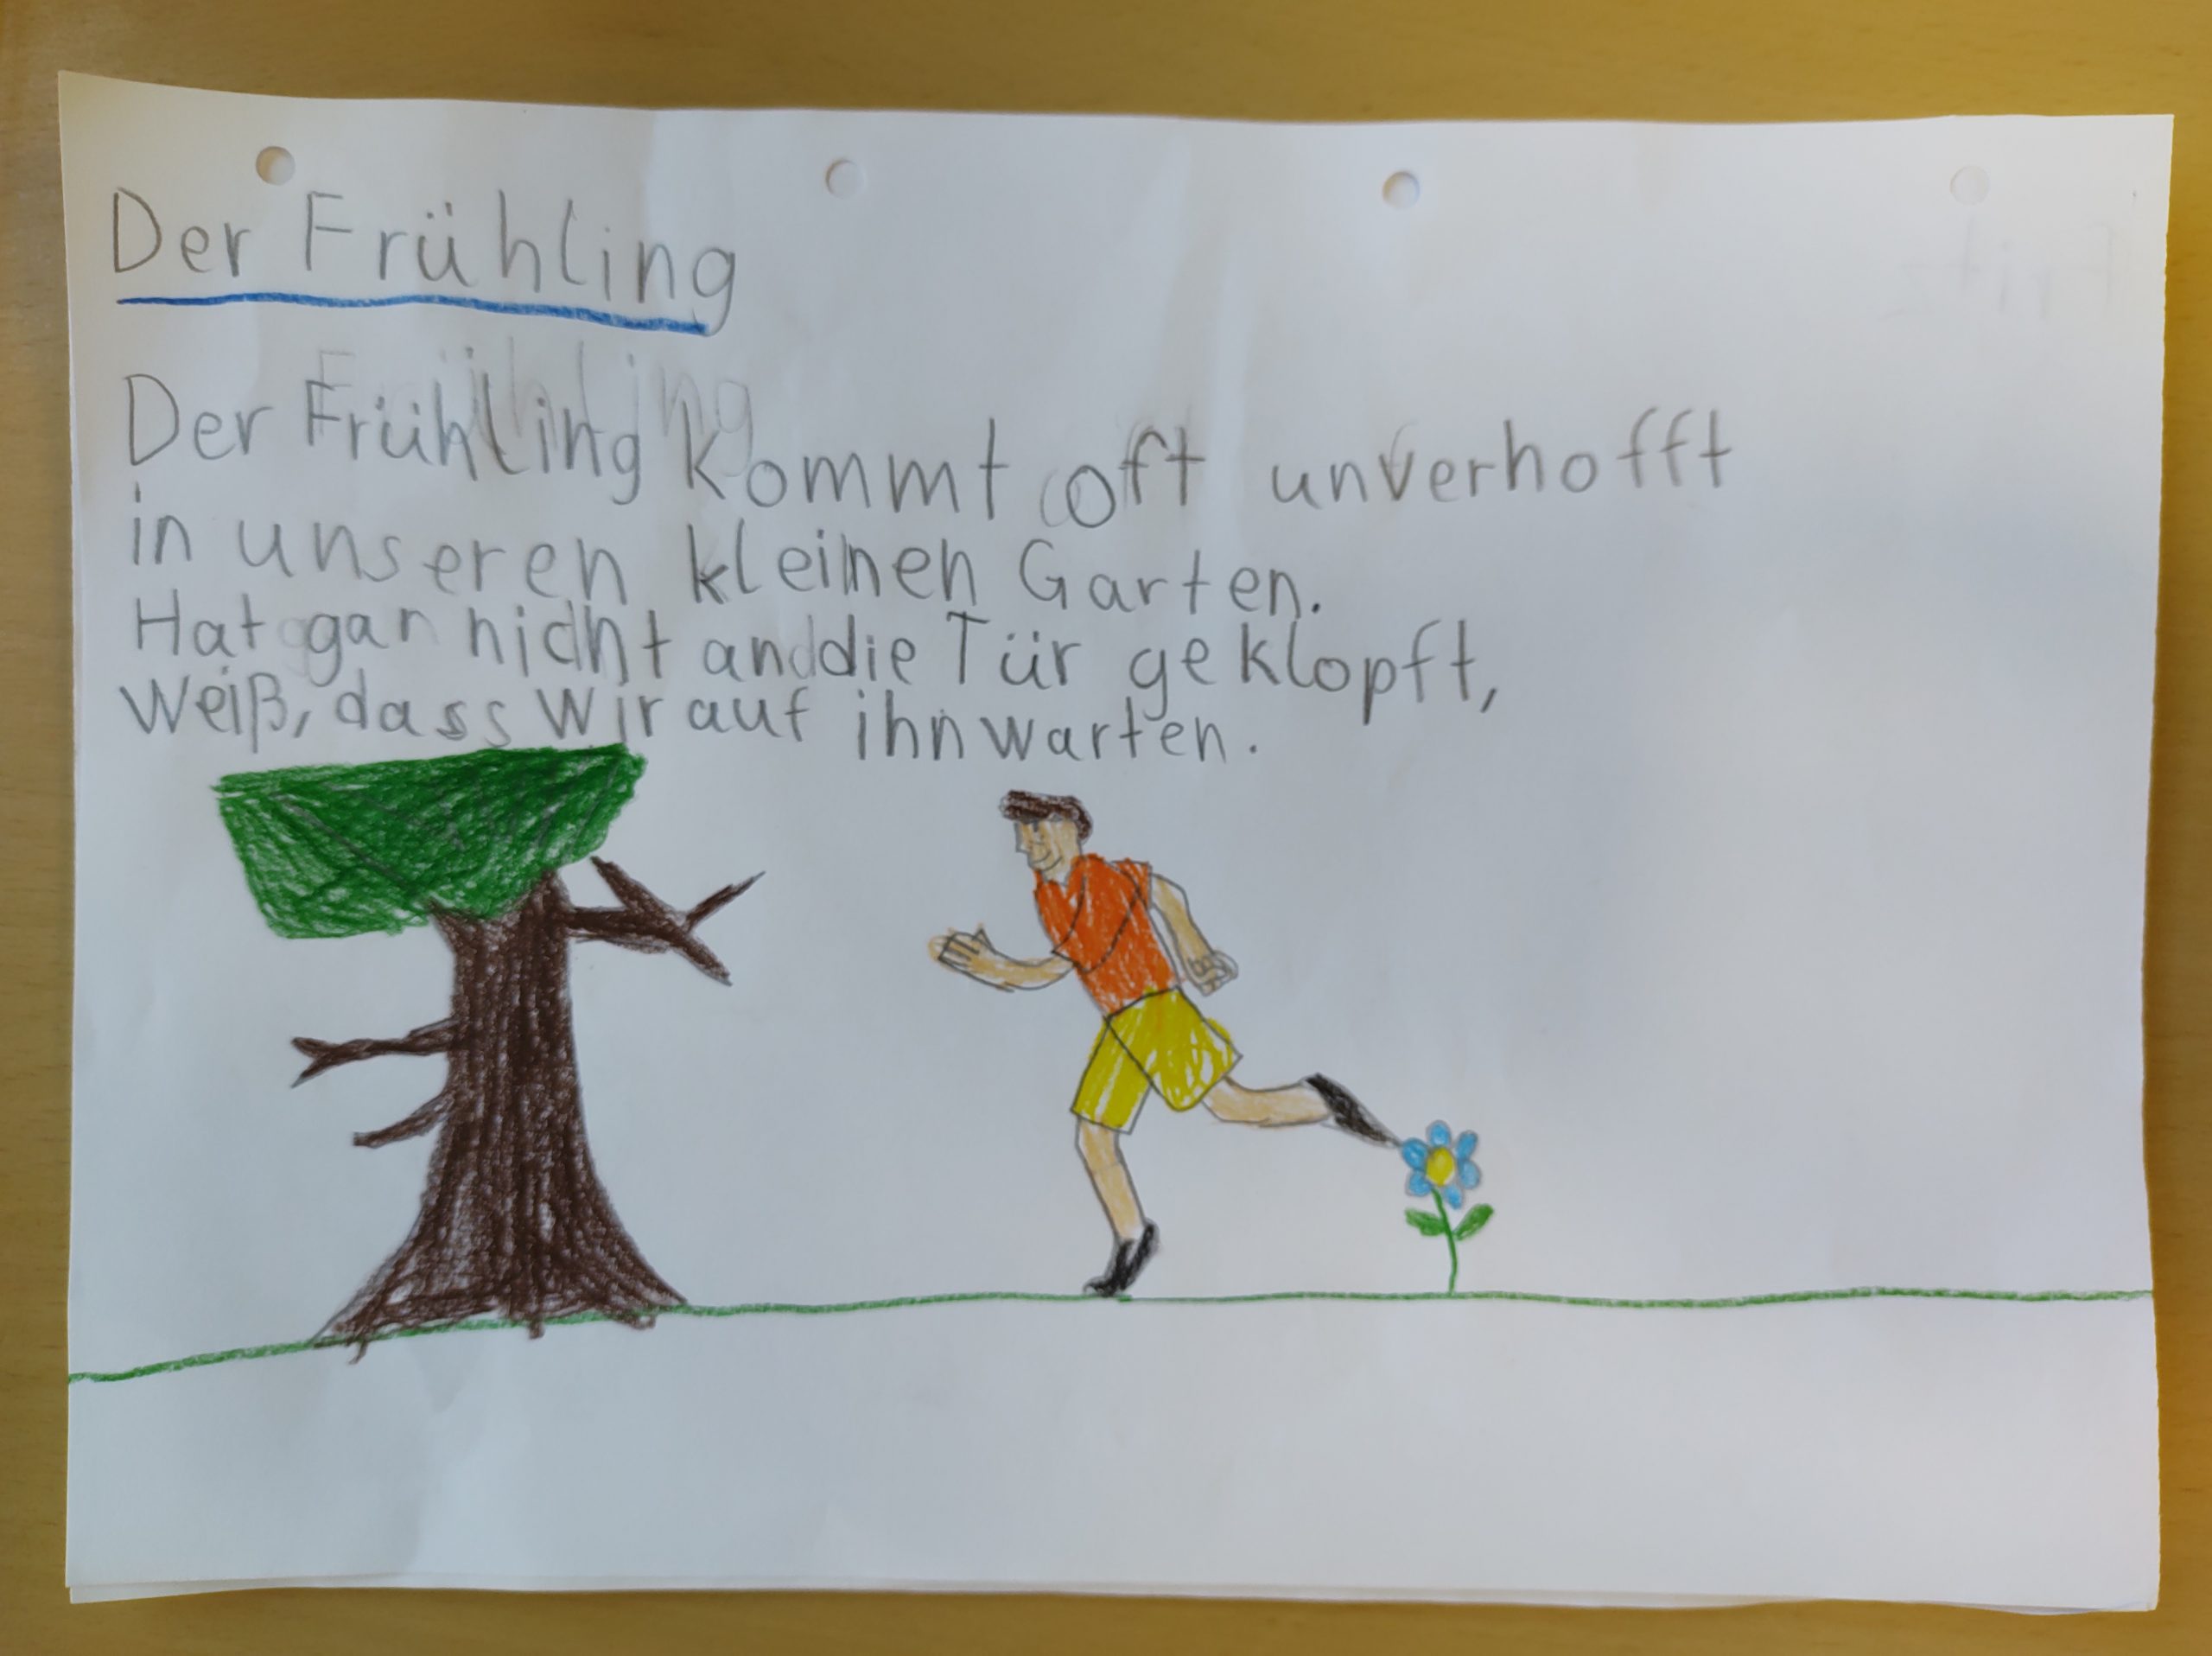 Der Frühling
Der Frühling kommt oft unverhofft
in unseren kleinen Garten.
Hat gar nicht an die Tür geklopft,
Weiß, dass wir auf ihn warten.
Fritz